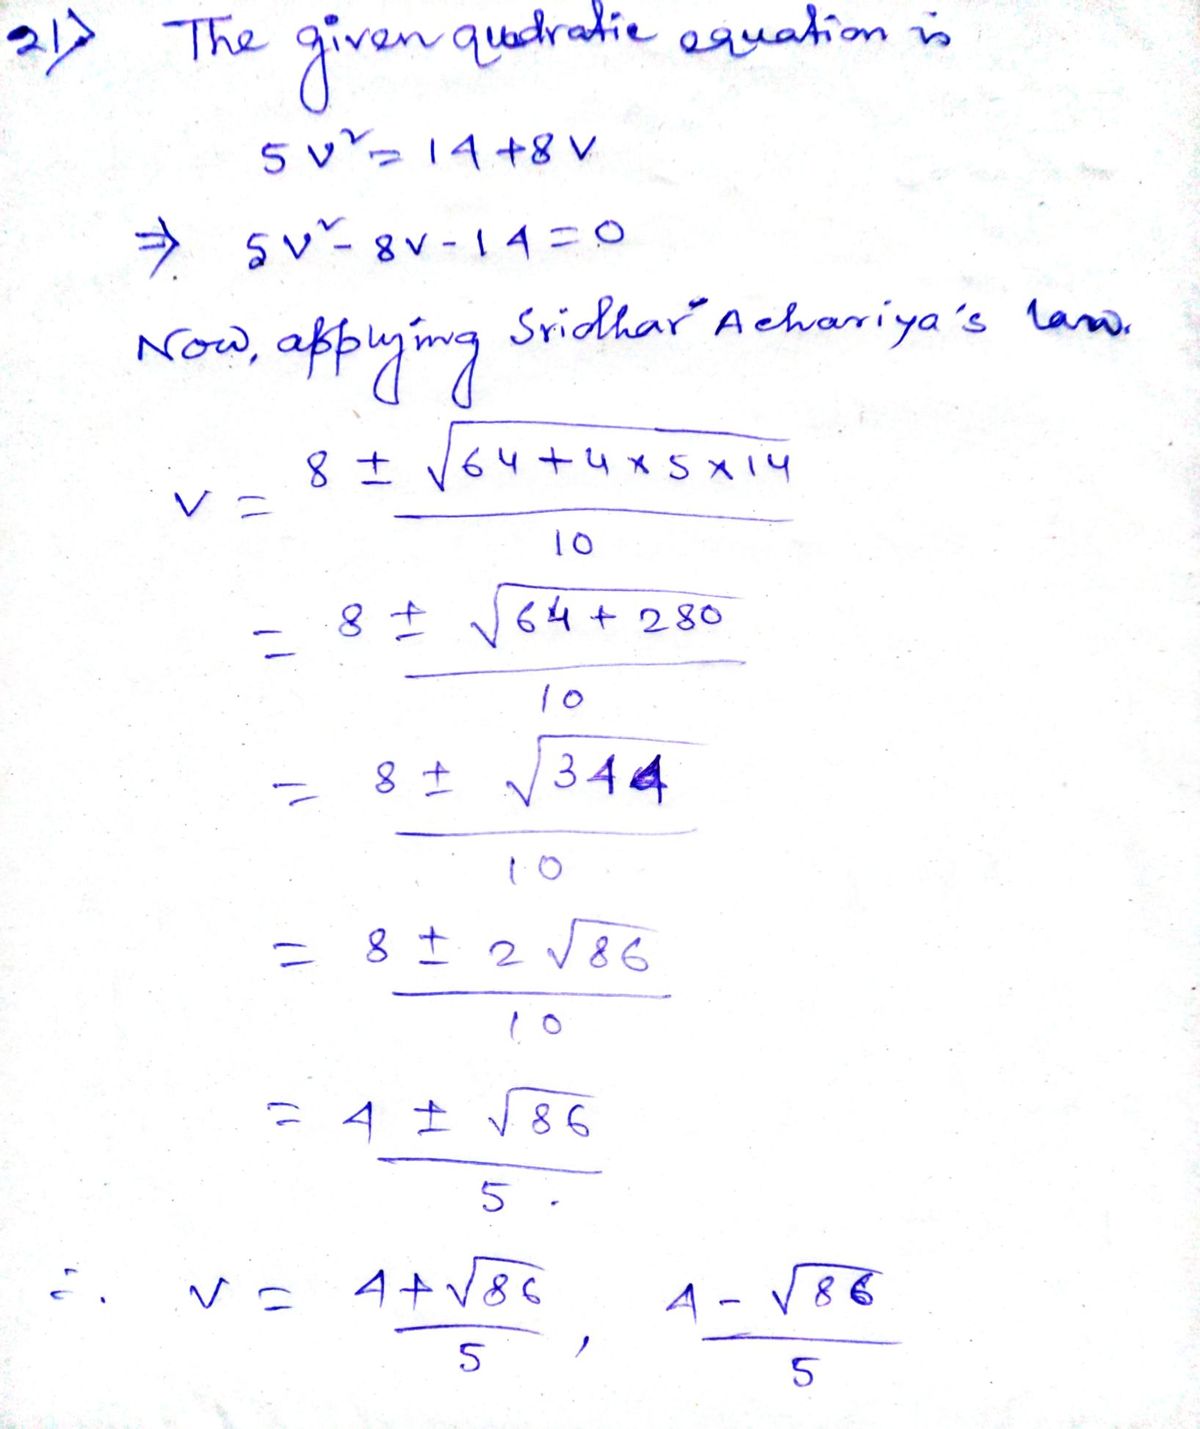 21) The given quadratic equation is
5v² = 14 + 8v
⇒ 5v² - 8v - 14 = 0
Now, applying Sridhar Achariya's law.
v = 8 ± √64 + 4 × 5 × 14 / 10
= 8 ± √64 + 280 / 10
= 8 ± √344 / 10
= 8 ± 2√86 / 10
= 4 ± √86 / 5.
∴ v = 4 + √86 / 5 , 4 - √86 / 5